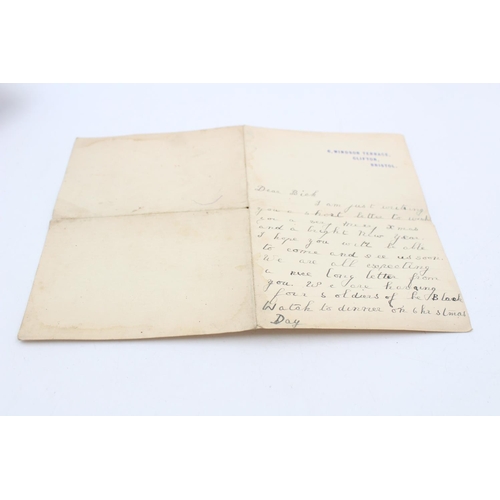 WINDSOR TERRACE,
CLIFTON,
BRISTOL.
Dear Dick
I am just writing
you a short letter to wish
you a very merry Xmas
and a bright New Year
I hope you will be able
to come and see us soon.
We are all expecting
a nice long letter from
you. We are having
four soldiers of the Black
Watch to dinner on Christmas
Day